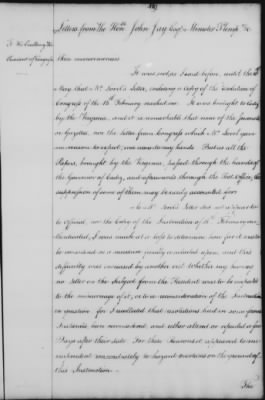 Letters from the Honble John Jay Esqr Minister Plenipo &c
To His Excellency the
President of Congress
these inconveniences
It was not as I said before, until the
May, that Mr Lovel's Letter, enclosing a Copy of the resolution of
Congress of the 15th February reached me. It was brought to Cadiz
by the Virginia, and it is remarkable that none of the Journals
or Gazettes, nor the letter from Congress which Mr Lovel gave
me reason to expect, ever came to my hands. But as all the
Papers, brought by the Virginia, passed through the hands of
the Governor of Cadiz, and afterwards through the Post Office, the
suppression of some of them may be easily accounted for.
As Mr Lovel's Letter did not appear to me
to official, nor the Copy of the Instruction of 15th February
authenticated, I was much at a loss to determine how far it was to
be considered as a measure finally concluded upon, and this
difficulty was increased by another viz. Whether my having
no letter on the subject from the President was to be imputed
to the miscarriage of it, or to a reconsideration of the Instruction
in question for I recollected that resolutions had in some former
Instances been reconsidered, and either altered or repealed a few
Days after their date. For these Reasons it appeared to me
imprudent immediately to hazard overtures on the ground of
this Instruction.
The